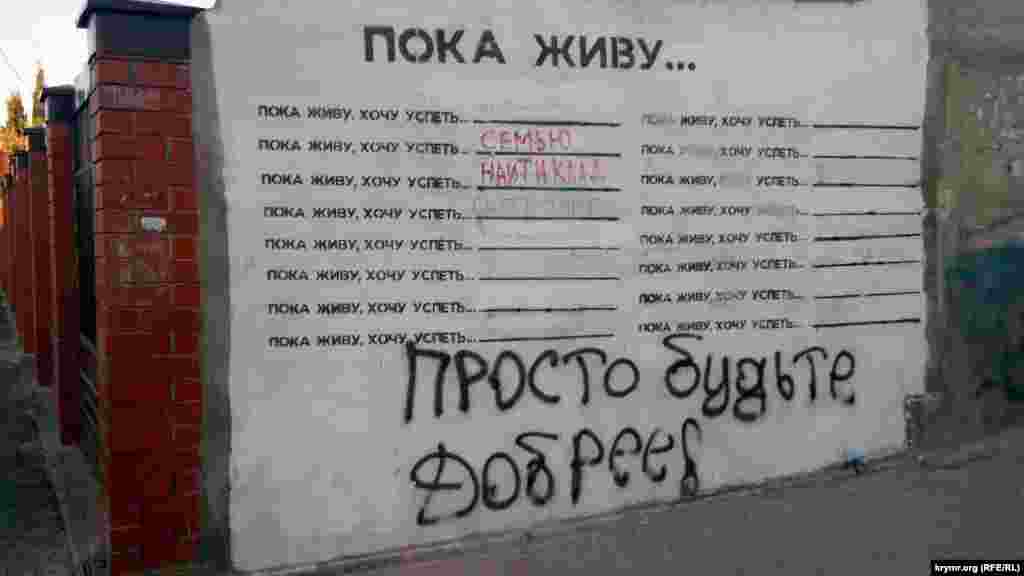 ПОКА ЖИВУ...
ПОКА ЖИВУ, ХОЧУ УСПЕТЬ...
ПОКА ЖИВУ, ХОЧУ УСПЕТЬ... СЕМЬЮ
ПОКА ЖИВУ, ХОЧУ УСПЕТЬ... НАЙТИ КЛАД
ПОКА ЖИВУ, ХОЧУ УСПЕТЬ...
ПОКА ЖИВУ, ХОЧУ УСПЕТЬ...
ПОКА ЖИВУ, ХОЧУ УСПЕТЬ...
ПОКА ЖИВУ, ХОЧУ УСПЕТЬ...
ПОКА ЖИВУ, ХОЧУ УСПЕТЬ...
ПОКА ЖИВУ, ХОЧУ УСПЕТЬ...
ПОКА ЖИВУ, ХОЧУ УСПЕТЬ...
ПОКА ЖИВУ, ХОЧУ УСПЕТЬ...
ПОКА ЖИВУ, ХОЧУ УСПЕТЬ...
ПОКА ЖИВУ, ХОЧУ УСПЕТЬ...
ПОКА ЖИВУ, ХОЧУ УСПЕТЬ...
ПОКА ЖИВУ, ХОЧУ УСПЕТЬ...
ПОКА ЖИВУ, ХОЧУ УСПЕТЬ...
ПРОСТО будьте
Добрее!
krymr.org (RFE/RL)